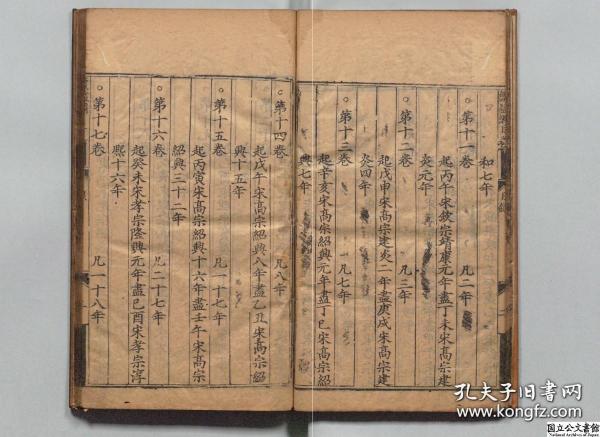 和七年
○第十一卷　凡二年
起丙午宋欽宗靖康元年盡丁未宋高宗建
炎元年
○第十二卷　凡三年
起戊申宋高宗建炎二年盡庚戌宋高宗建
炎四年
○第十三卷　凡七年
起辛亥宋高宗紹興元年盡丁巳宋高宗紹
興七年
○第十四卷　凡八年
起戊午宋高宗紹興八年盡乙丑宋高宗紹
興十五年
○第十五卷　凡一十七年
起丙寅宋高宗紹興十六年盡壬午宋高宗
紹興三十二年
○第十六卷　凡二十七年
起癸未宋孝宗隆興元年盡己酉宋孝宗淳
熙十六年
○第十七卷　凡一十八年
孔夫子旧书网
www.kongfz.com
国立公文書館
National Archives of Japan